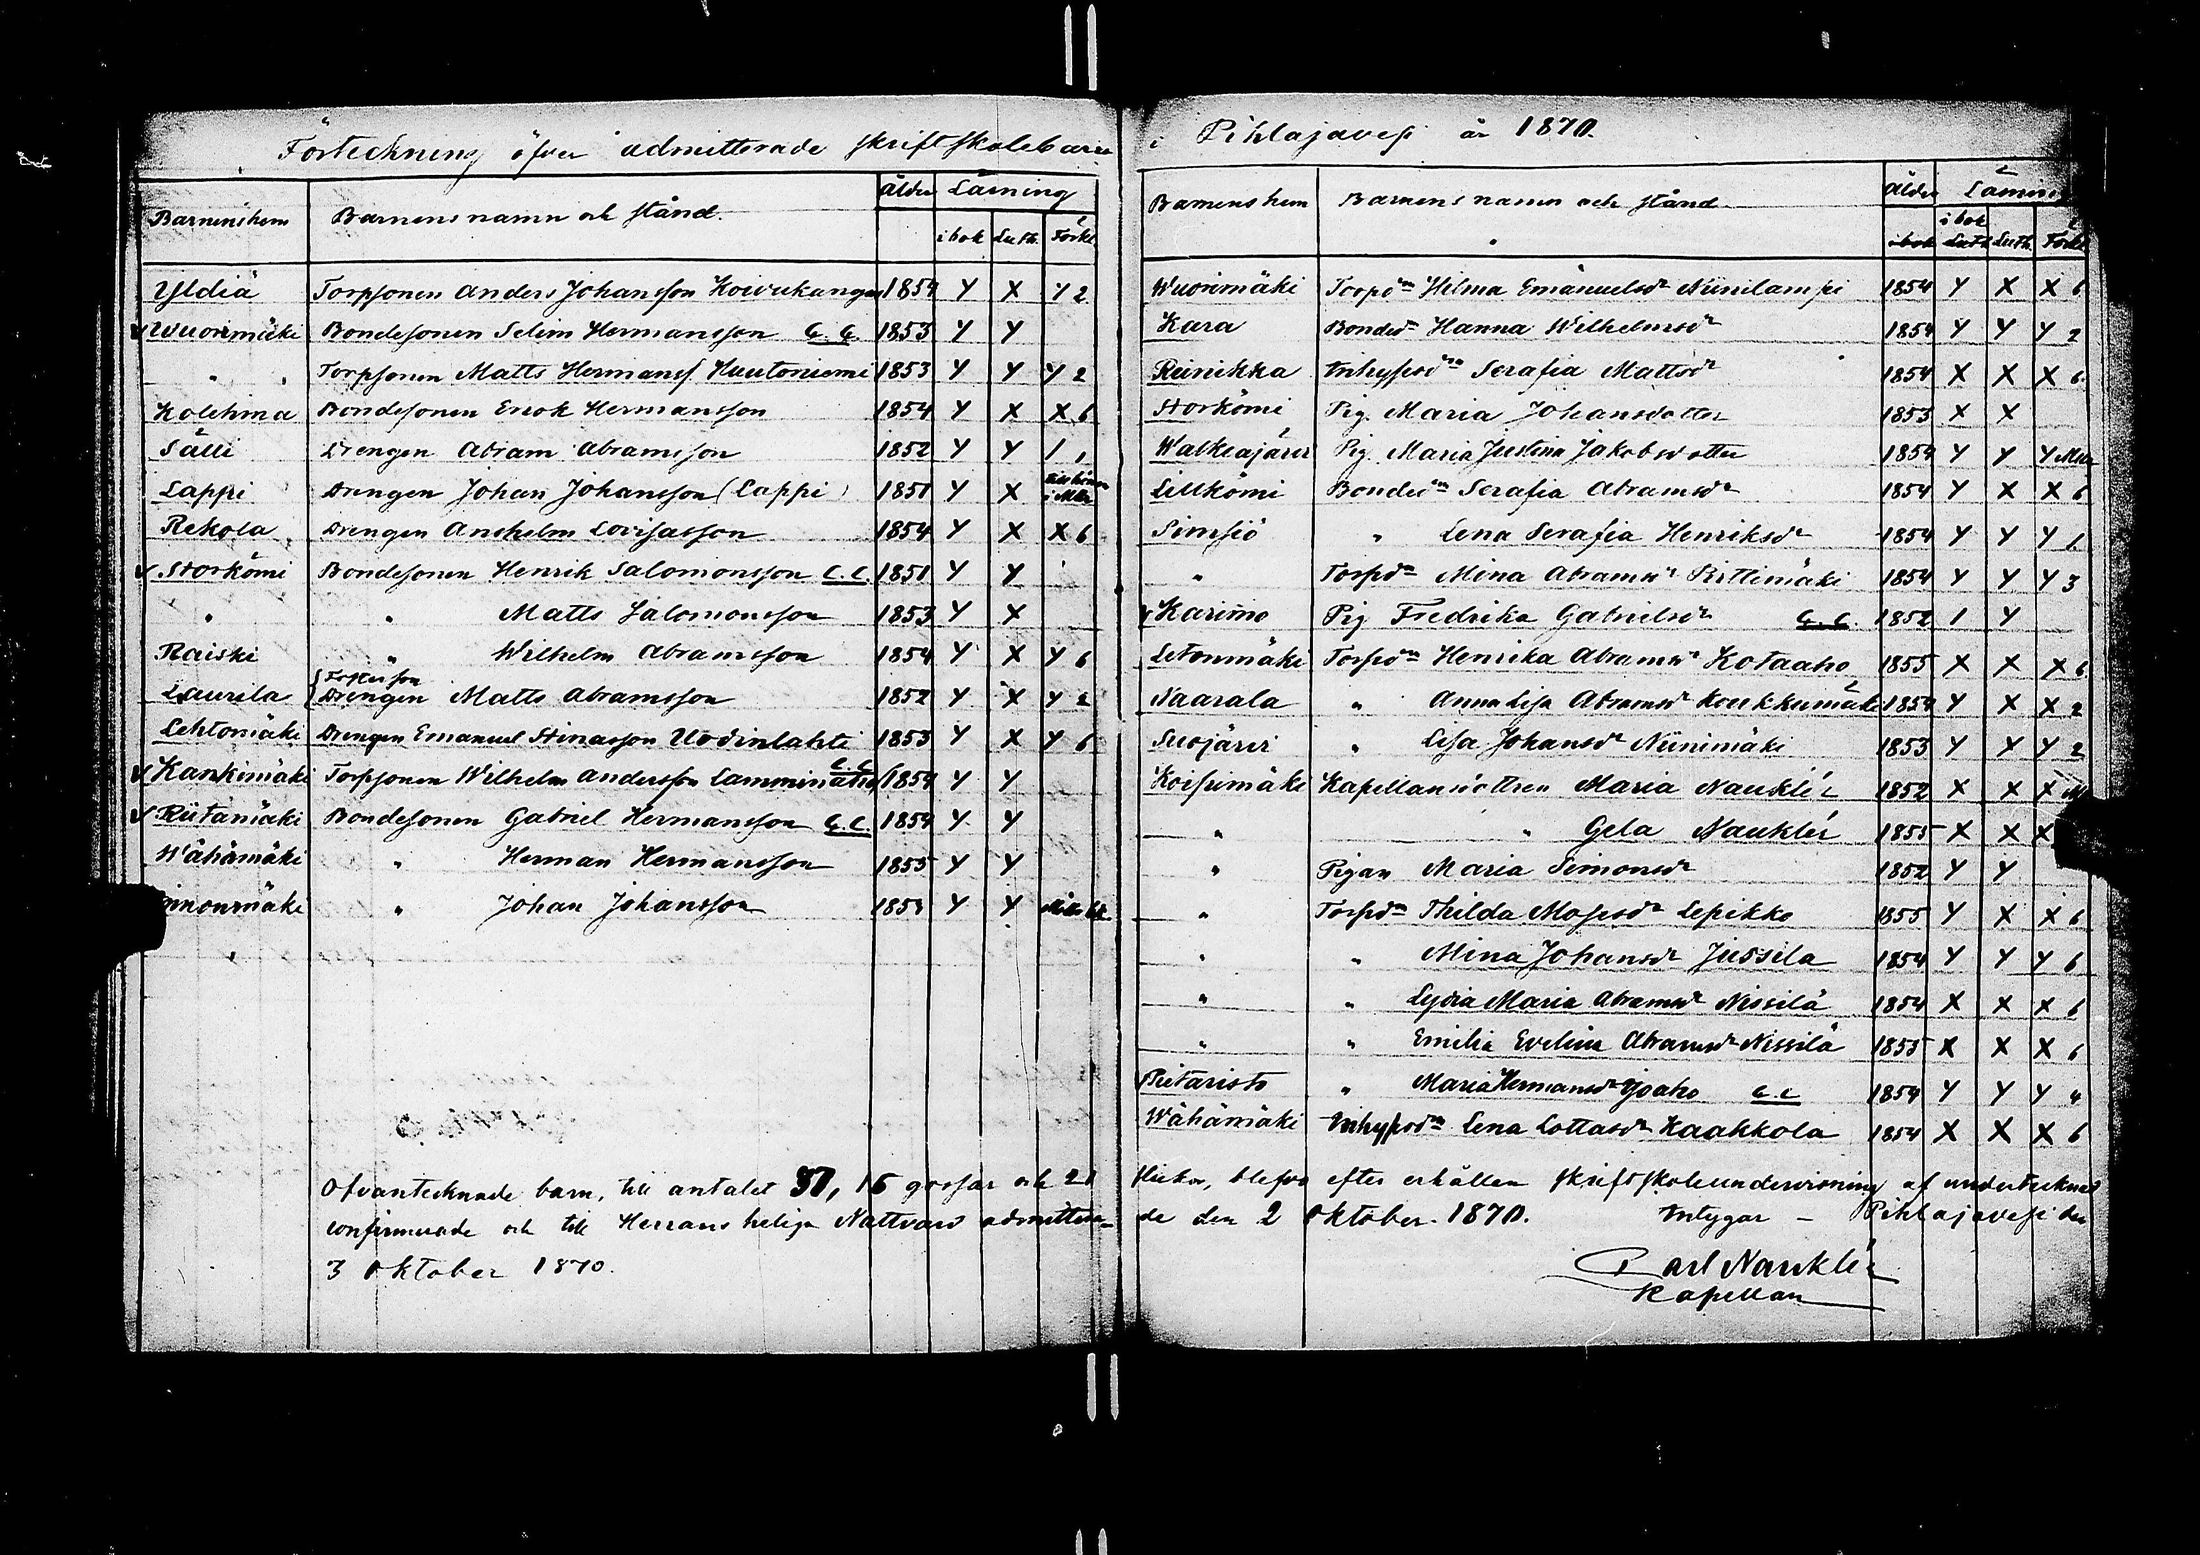 Förteckning öfver admitterade skriftskolebarn
Barnens hem Barnens namn och stånd. Ålder Läsning
i bok Luth. Förkl.
Yldiä Torpsonen Anders Johansson Koivukangas 1854 Y X Y 2
v Wuorimäki Bondesonen Selim Hermansson C. C. 1853 Y Y
" " Torpsonen Matts Hermanss Huutoniemi 1853 Y Y Y 2
Kolehma Bondesonen Enok Hermansson 1854 Y X X 6
Sälli Drengen Abram Abramsson 1852 Y Y 1 1
Lappi Drengen Johan Johansson (Lappi) 1851 Y X
Rekola Drengen Anshelm Lovisasson 1854 Y X X 6
v Storkömi Bondesonen Henrik Salomonsson C. C. 1851 Y Y
" " Matts Salomonsson 1853 Y X
Raiski " Wilhelm Abramsson 1854 Y X Y 6
Fosterson
Laurila Drengen Matts Abramsson 1852 Y X Y 2
Lehtomäki Drengen Emanuel Stinasson Uodinlahti 1853 Y X Y 6
v Kankimäki Torpsonen Wilhelm Andersson Lamminaho C. C. 1854 Y Y
v Riitamäki Bondesonen Gabriel Hermansson C. C. 1854 Y Y
Wähämäki " Herman Hermansson 1855 Y Y
imonmäki " Johan Johansson 1853 Y Y
Ofvantecknade barn, till antalet 37, 16 gossar och 21
confirmerade och till Herrans heliga Nattvard admittera-
3 Oktober 1870.
i Pihlajavesi år 1870.
Barnens hem Barnens namn och stånd Ålder Läsning
i bok Luth. Förkl.
Wuorimäki Torpdn Hilma Emanuelsdr Niinilampi 1854 Y X X 6
Kara Bondedn Hanna Wilhelmsdr 1854 Y Y Y 2
Reinikka Inhypsdn Serafia Mattsdr 1854 X X X 6
Storkömi Pig. Maria Johansdotter 1853 X X
Walkeajärvi Pig. Maria Justina Jakobsdotter 1854 Y Y Y
Lillkömi Bondedn Serafia Abramsdr 1854 Y X X 6
Simsiö " Lena Serafia Henriksdr 1854 Y Y Y 6
" Torpdn Mina Abramsdr Rittimäki 1854 Y Y Y 3
v Karimo Pig Fredrika Gabrielsdr C. C. 1852 1 Y
Letonmäki Torpdn Henrika Abramsdr Kotaaho 1855 X X X 6
Naarala " Anna Lisa Abramsdr Koukkumäki 1854 Y X X 2
Suojärvi " Lisa Johansdr Niinimäki 1853 Y Y Y 2
Koipimäki Kapellansdottren Maria Nauklér 1852 X X X
" " Gela Nauklér 1855 X X X
" Pigan Maria Simonsdr 1852 Y Y
" Torpdn Thilda Mosesdr Lepikko 1855 Y X X 6
" " Mina Johansdr Jussila 1854 Y Y Y 6
" " Lydia Maria Abramsdr Nissilä 1854 X X X 6
" " Emilia Evelina Abramsdr Nissilä 1855 X X X 6
Pietaristo " Maria Hermansdr Ojoaho C. C 1854 Y Y Y 4
Wähämäki Inhypsdn Lena Lottasdr Kaakkola 1854 X X X 6
flickor, blefvo efter erhållen skriftskoleundervisning af undertecknad
de den 2 Oktober. 1870. Intygar – Pihlajavesi den
Carl Nauklér
Kapellan